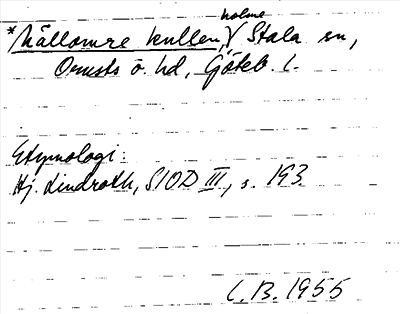 holme
*Mällomre kullen, V Stala sn,
Orusts ö. hd, Göteb. l.
Etymologi:
Hj. Lindroth, SIOD III, s. 193.
C.B. 1955